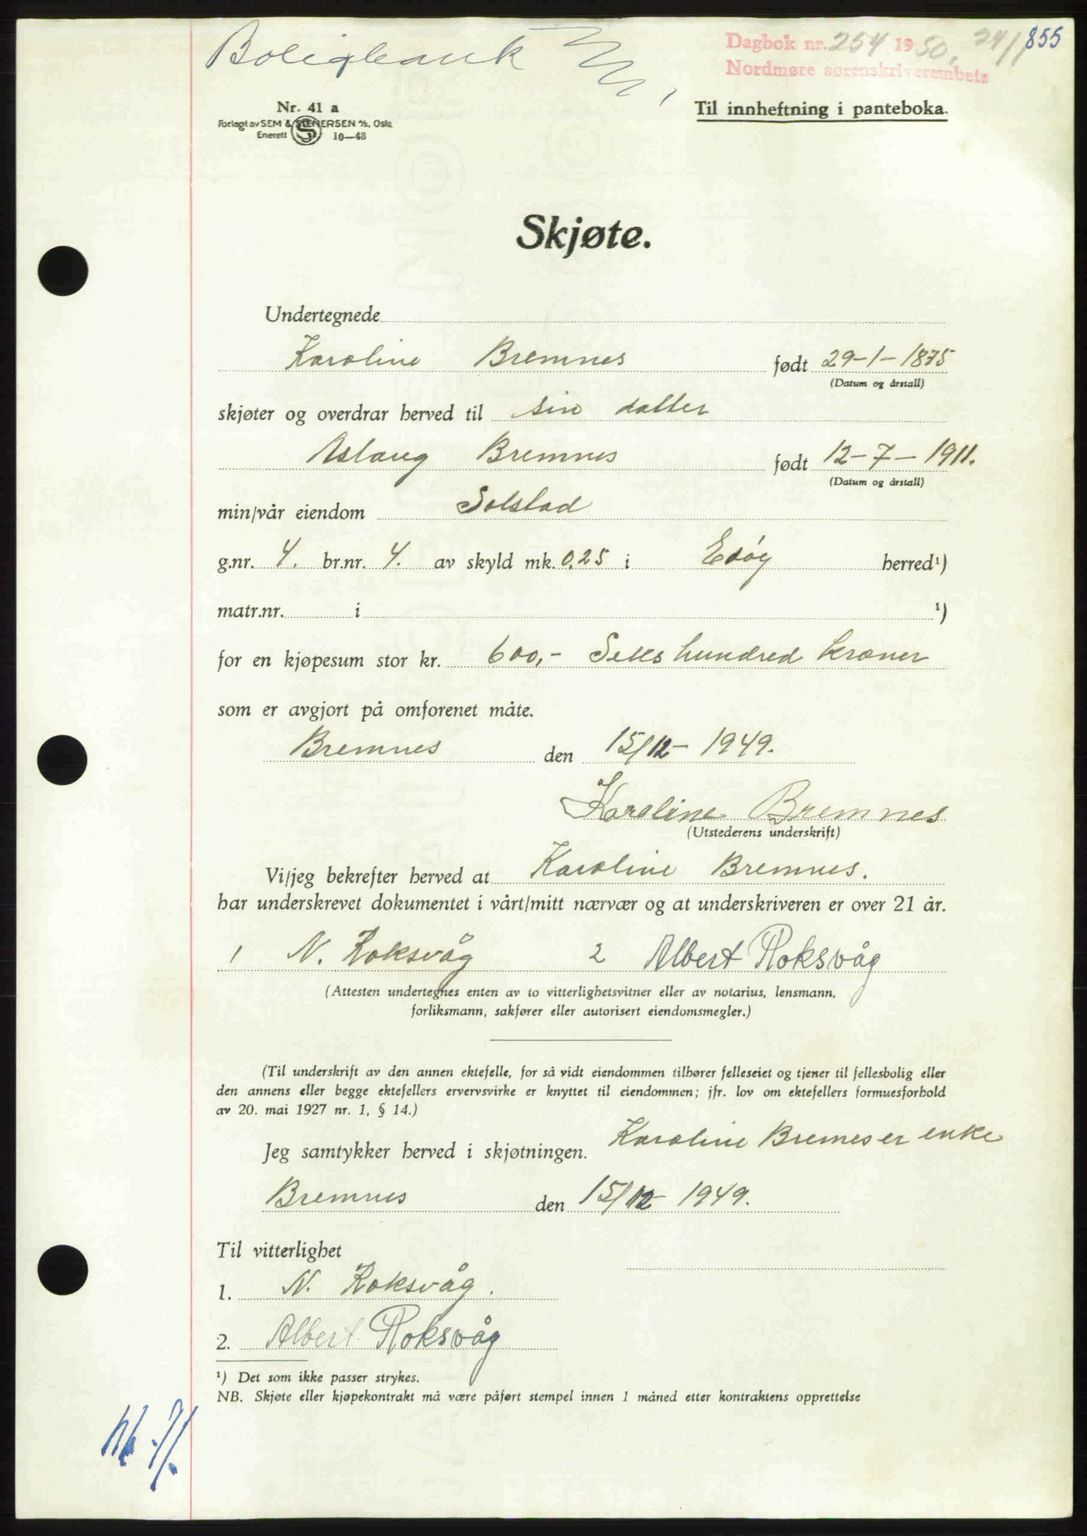 Boligbank
Dagbok nr. 254 1950, 24/1 855
Nordmøre sorenskriverembete
Nr. 41 a
Forlagt av SEM & STENERSEN A/S, Oslo
Enerett S 10—48
Til innheftning i panteboka.
Skjøte.
Undertegnede
Karoline Bremnes født 29-1-1875
(Datum og årstall)
skjøter og overdrar herved til sin datter
Aslaug Bremnes født 12-7-1911.
(Datum og årstall)
min/vår eiendom Solstad
g.nr. 4. br.nr. 4. av skyld mk. 0,25 i Edøy herred¹)
matr.nr. i ¹)
for en kjøpesum stor kr. 600,- Seks hundred kroner
som er avgjort på omforenet måte.
Bremnes den 15/12- 1949.
Karoline Bremnes
(Utstederens underskrift)
Vi/jeg bekrefter herved at Karoline Bremnes.
har underskrevet dokumentet i vårt/mitt nærvær og at underskriveren er over 21 år.
1 N. Roksvåg 2 Albert Roksvåg
(Attesten undertegnes enten av to vitterlighetsvitner eller av notarius, lensmann,
forliksmann, sakfører eller autorisert eiendomsmegler.)
(Til underskrift av den annen ektefelle, for så vidt eiendommen tilhører felleseiet og tjener til fellesbolig eller
den annens eller begge ektefellers ervervsvirke er knyttet til eiendommen; jfr. lov om ektefellers formuesforhold
av 20. mai 1927 nr. 1, § 14.)
Jeg samtykker herved i skjøtningen. Karoline Bremes er enke
Bremnes den 15/12- 1949.
Til vitterlighet
1. N. Roksvåg.
2. Albert Roksvåg
¹) Det som ikke passer strykes.
NB. Skjøte eller kjøpekontrakt må være påført stempel innen 1 måned etter kontraktens opprettelse